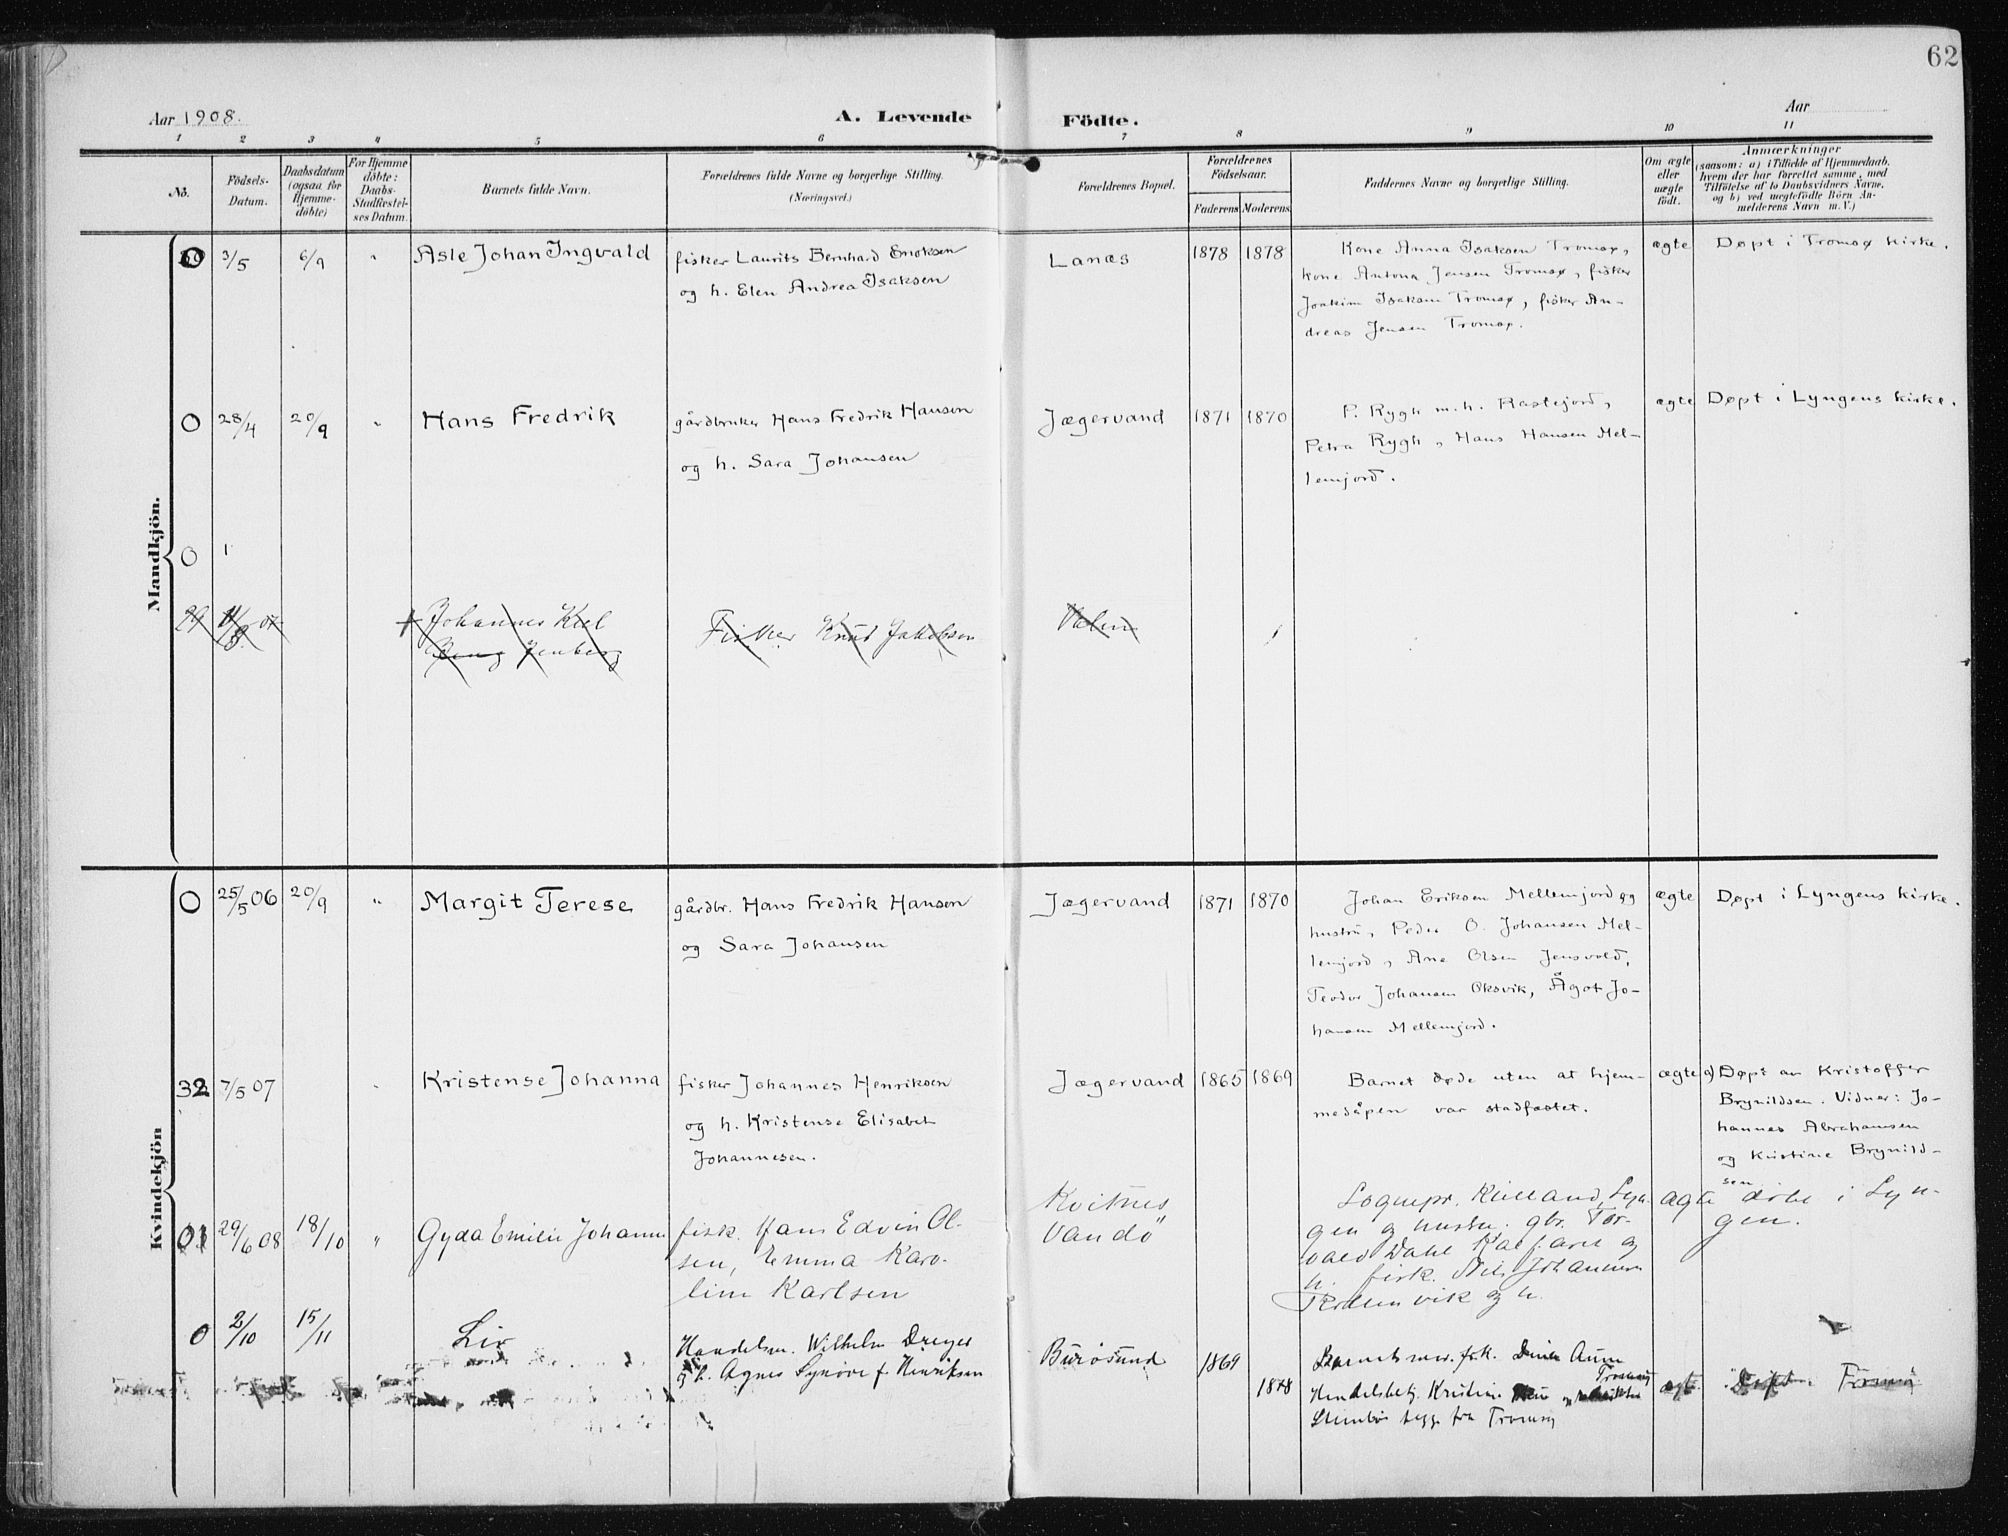 62
Aar 1908.
A. Levende Födte.
Aar
1 2 3 4 5 6 7 8 9 10 11
No.
Födsels-
Datum.
Daabsdatum
(ogsaa for
Hjemme-
döbte)
For Hjemme
döbte:
Daabs-
Stadfæstel-
ses Datum.
Barnets fulde Navn.
Forældrenes fulde Navne og borgerlige Stilling.
(Næringsvei.)
Forældrenes Bopæl.
Forældrenes
Födselsaar.
Faderens Moderens
Faddernes Navne og borgerlige Stilling.
Om ægte
eller
uægte
født.
Anmærkninger
(saasom: a) i Tilfælde af Hjemmedaab,
hvem der har forrettet samme, med
Tilføielse af to Daabsvidners Navne,
og b) ved uægtefødte Børn An-
melderens Navn m. V.)
Mandkjön.
0 3/5 6/9 " Asle Johan Ingvald
fisker Laurits Bernhard Enoksen
og h. Elen Andrea Isaksen
Lanæs
1878 1878
Kone Anna Isaksen Tromsø,
kone Antona Jensen Tromsø, fisker
Joakim Isaksen Tromsø, fisker An-
dreas Jensen Tromsø.
ægte
Døpt i Tromsø kirke.
0 28/4 20/9 " Hans Fredrik
gårdbruker Hans Fredrik Hansen
og h. Sara Johansen
Jægervand
1871 1870
P. Rygh m. h. Rastefjord,
Petra Rygh, Hans Hansen Mel-
lemjord.
ægte
Døpt i Lyngens kirke.
0
29 11/8 07 Johannes Kiel
Fisker Knud Jakobsen
Kvindekjön
0 25/5 06 20/9 " Margit Terese
gårdbr. Hans Fredrik Hansen
og Sara Johansen
Jægervand
1871 1870
Johan Eriksen Mellemjord og
hustru, Peder O. Johansen Mel-
lemjord, Ane Olsen Jensvold,
Teodor Johansen Oksvik, Ågot Jo-
hansen Mellemjord.
ægte
Døpt i Lyngens kirke.
32 7/5 07 " Kristense Johanna
fisker Johannes Henriksen
og h. Kristense Elisabet
Johannesen.
Jægervand
1865 1869
Barnet døde uten at hjem-
medåpen var stadfæstet.
ægte
a) Døpt av Kristoffer
Brynildsen. Vidner: Jo-
hannes Abrahamsen
og Kristine Brynild-
sen
0 29/6 08 18/10 " Gyda Emilie Johanne
fisk. Hans Edvin Ol-
sen, Emma Karo-
line Karlsen
Kvitnes
Vandö
Sognepr. Kielland, Lyn-
gen og hustru. gbr. Tor-
vald Dahl og
h. fisk. Nils Johannesen
og h.
ægte
døbt i Lyn-
gen.
0 2/10 15/11 Liv
Handelsm. Wilhelm Dreyer
og h. Agnes Synøve f. Henriksen
Burøsund
1869
1878
Barnets mor. frk.
Handelsbetj. Kristian
begge fra Tromsø
ægte
Døpt i Tromsø